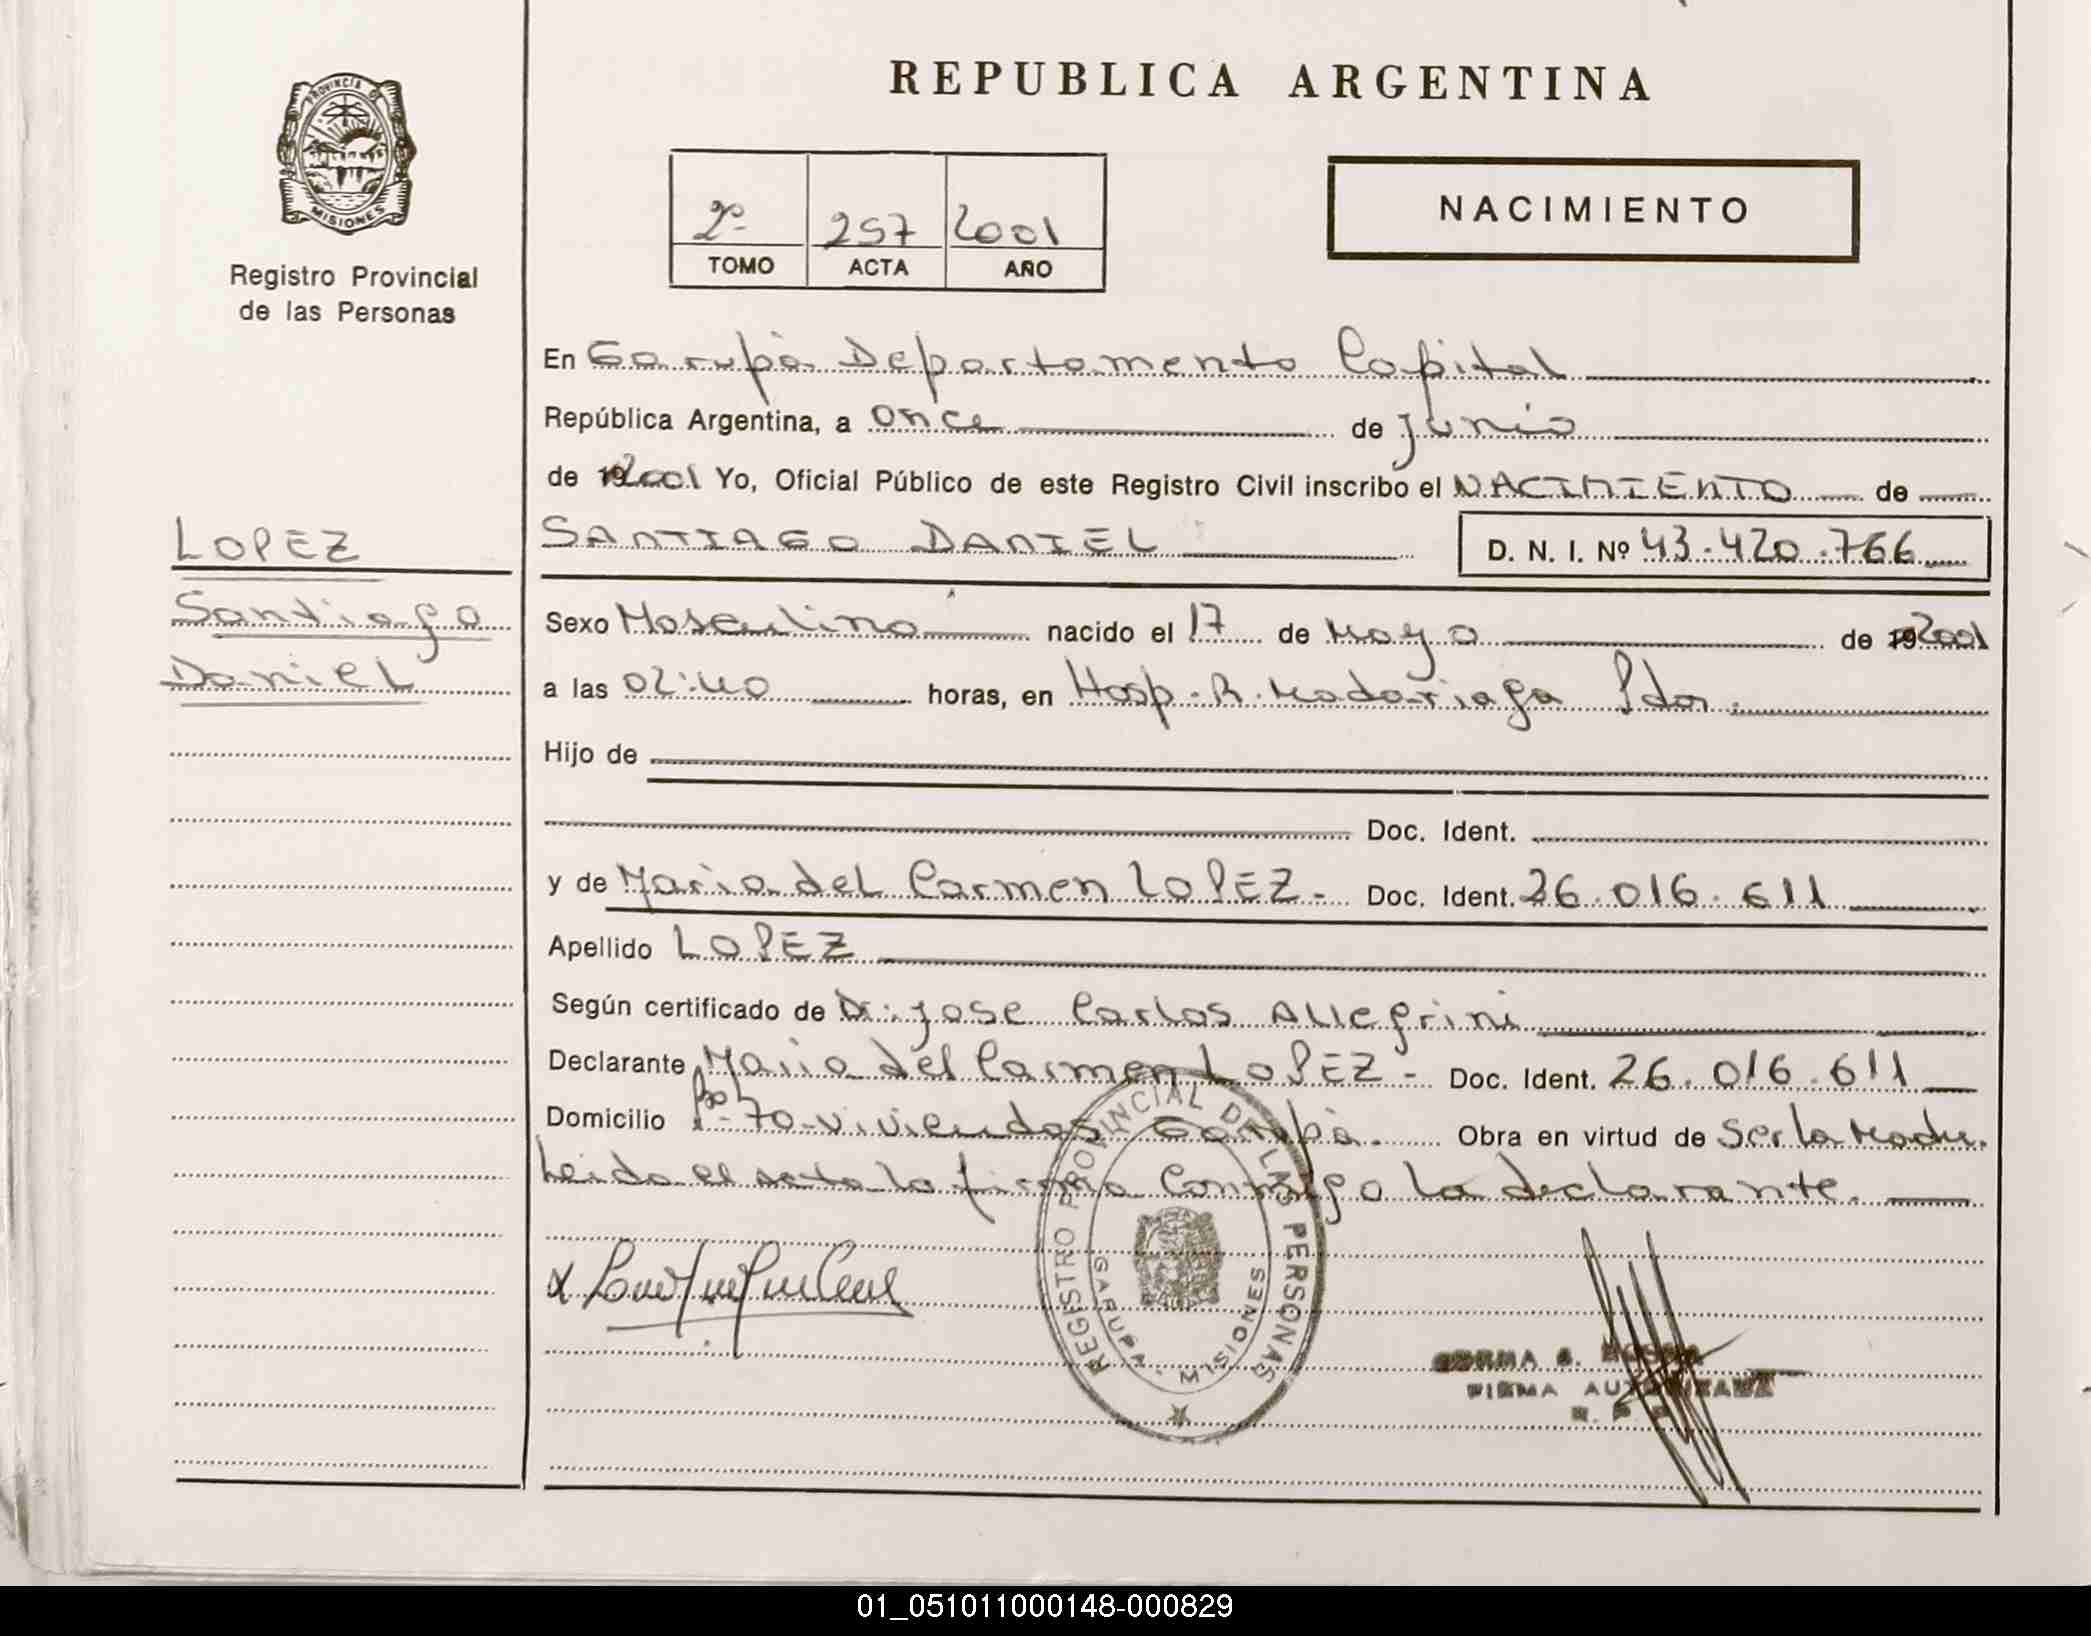 PROVINCIA DE
MISIONES
Registro Provincial
de las Personas
LOPEZ
Santiago
Daniel
REPUBLICA ARGENTINA
2º 257 2001
TOMO ACTA AÑO
NACIMIENTO
En Garupà Departamento Capital
República Argentina, a once de junio
de 2001 Yo, Oficial Público de este Registro Civil inscribo el NACIMIENTO de
SANTIAGO DANIEL D. N. I. Nº 43.420.766
Sexo Masculino nacido el 17 de Mayo de 2001
a las 02:40 horas, en Hosp. R. Madariaga Pdas.
Hijo de
Doc. Ident.
y de Maria del Carmen LOPEZ- Doc. Ident. 26.016.611
Apellido LOPEZ
Según certificado de Dr. Jose Carlos Allegrini
Declarante Maria del Carmen LOPEZ- Doc. Ident. 26.016.611
Domicilio Bº 70 viviendas Garupà. Obra en virtud de Ser la Madre.
Leida el acta la firma conmigo la declarante.
REGISTRO PROVINCIAL DE LAS PERSONAS
GARUPA - MISIONES
NORMA
FIRMA AUTORIZADA
01_051011000148-000829